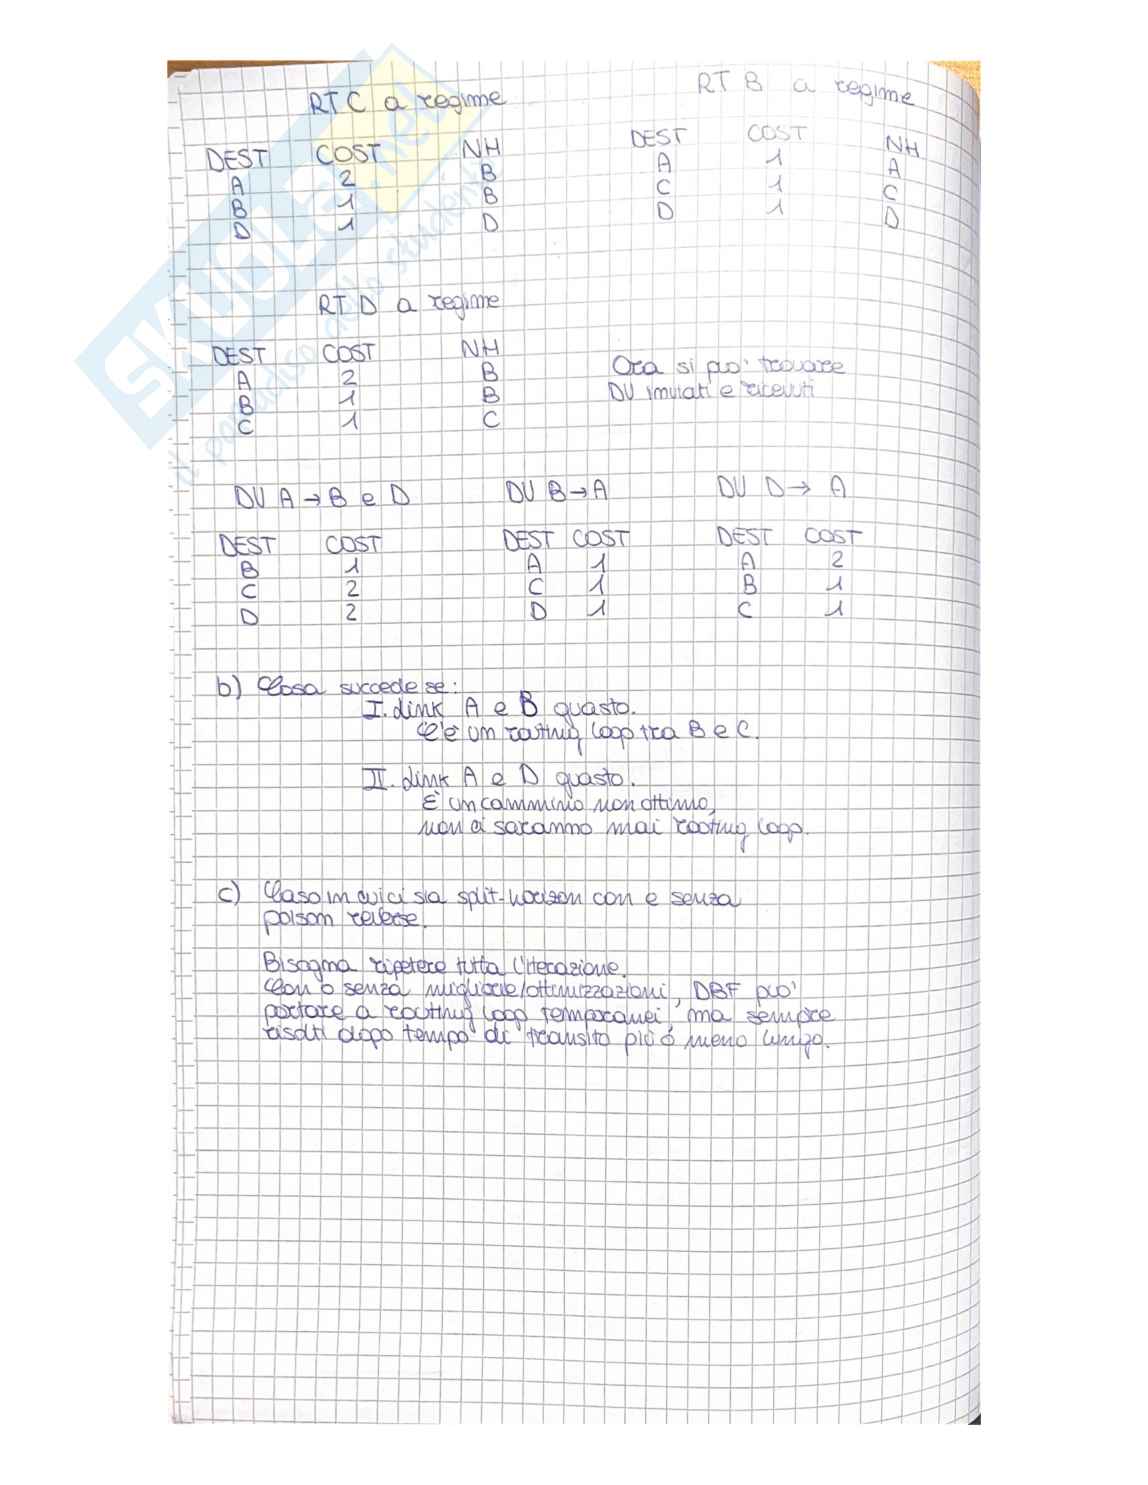 RT C a regime
RT B a regime
DEST COST NH
A 2 B
B 1 B
D 1 D
DEST COST NH
A 1 A
C 1 C
D 1 D
RT D a regime
DEST COST NH
A 2 B
B 1 B
C 1 C
Ora si puo' trovare
DV inviati e ricevuti
DV A → B e D
DEST COST
B 1
C 2
D 2
DV B → A
DEST COST
A 1
C 1
D 1
DV D → A
DEST COST
A 2
B 1
C 1
b) Cosa succede se:
I. Link A e B guasto.
C'è un routing loop tra B e C.
II. Link A e D guasto.
È un cammino non ottimo,
non ci saranno mai routing loop.
c) Caso in cui ci sia split-horizon con e senza
poison reverse.
Bisogna ripetere tutta l'iterazione.
Con o senza migliorie/ottimizzazioni, DBF puo'
portare a routing loop temporanei, ma sempre
risolti dopo tempo di transito più o meno lungo.
SKUOLA.net
il paradiso dello studente